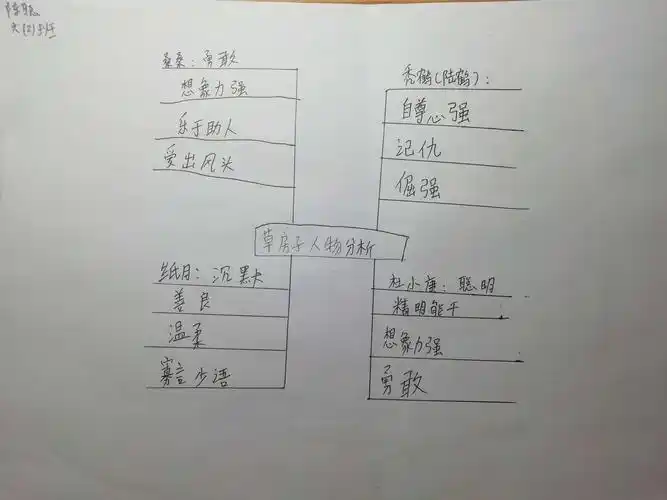 六(2)班
桑桑：勇敢
想象力强
乐于助人
爱出风头
秃鹤(陆鹤)：
自尊心强
记仇
倔强
草房子人物分析
纸月：沉默
善良
温柔
寡言少语
杜小康：聪明
精明能干
想象力强
勇敢